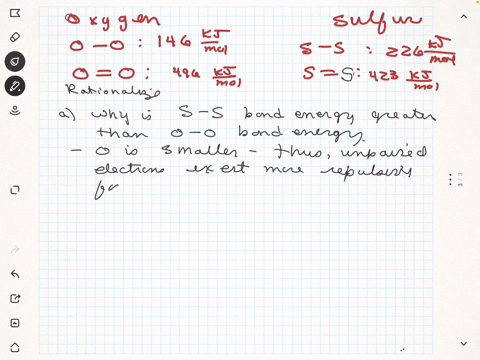 Oxygen sulfur
O-O : 146 KJ/mol S-S : 226 KJ/mol
O=O : 496 KJ/mol S=S : 423 KJ/mol
Rationalize
a) why is S-S bond energy greater
than O-O bond energy.
- O is smaller - thus, unpaired
electrons exert more repulsive
for
3/3